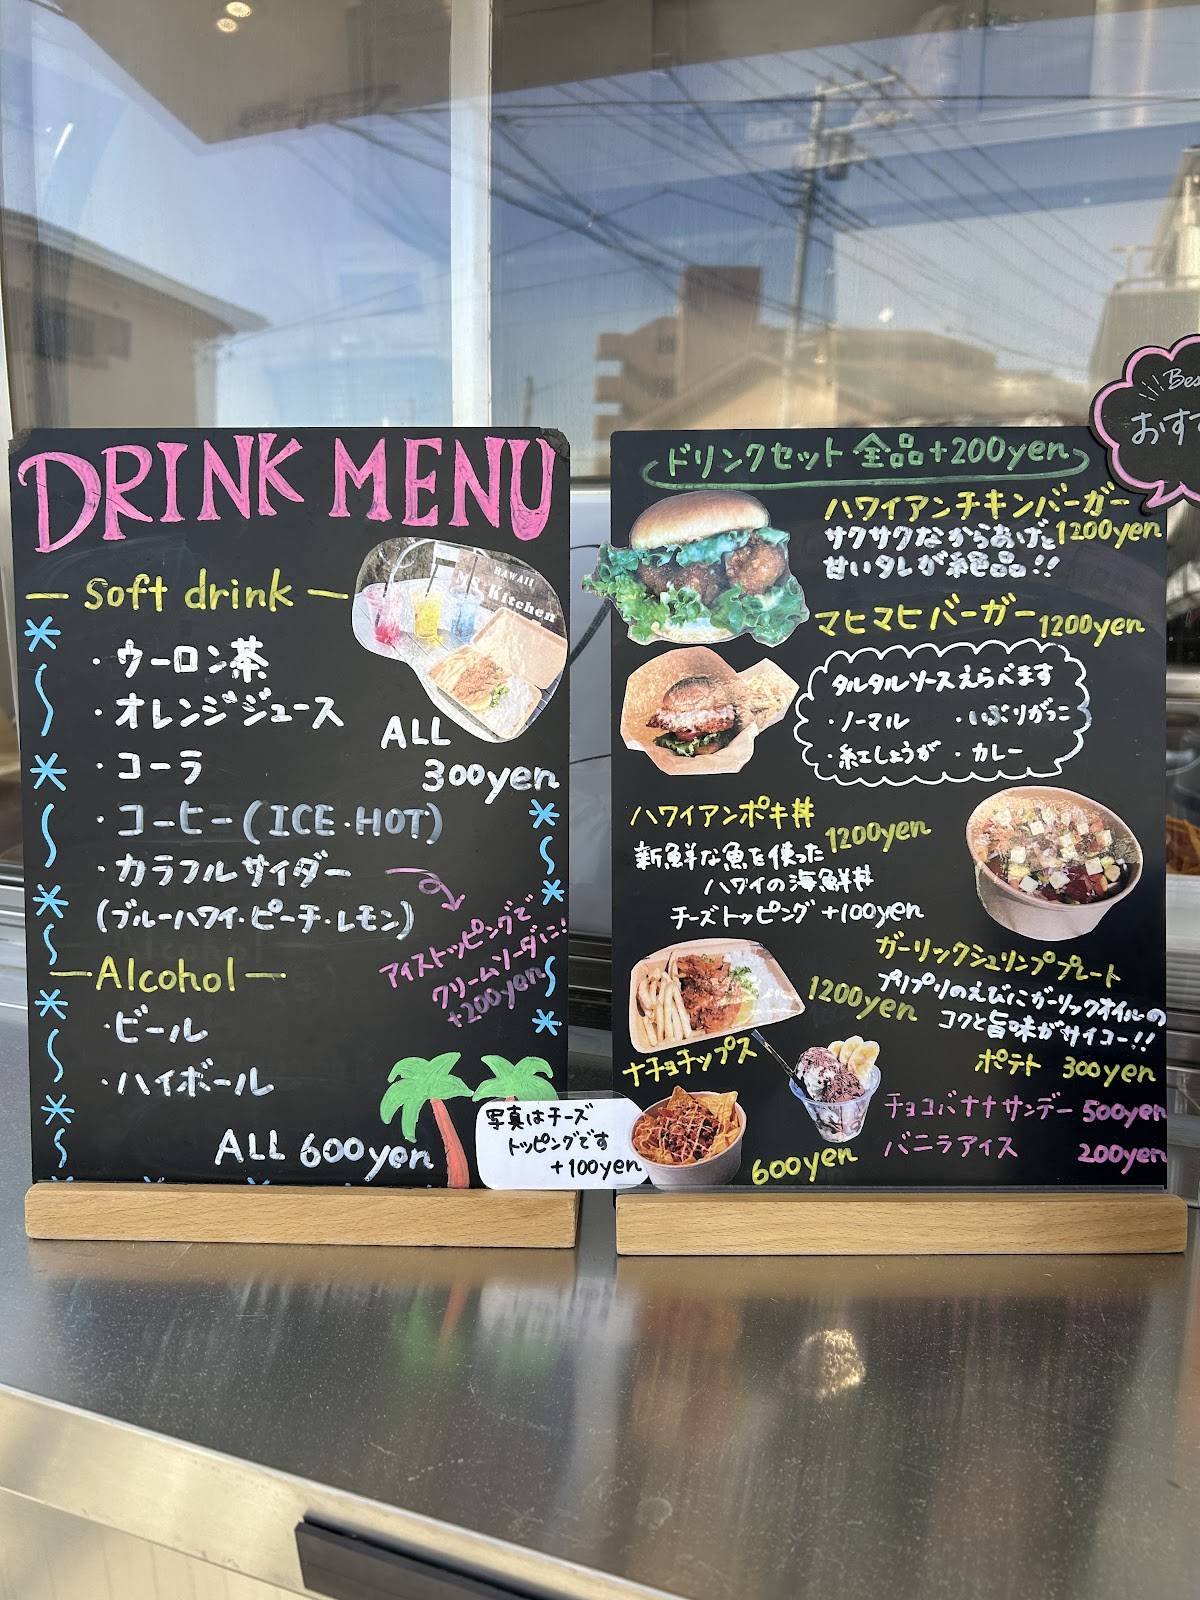 DRINK MENU
Soft drink
・ウーロン茶
・オレンジジュース
・コーラ
・コーヒー(ICE・HOT)
・カラフルサイダー
(ブルーハワイ・ピーチ・レモン)
ALL
300yen
アイストッピングで
クリームソーダに!
+200yen
Alcohol
・ビール
・ハイボール
ALL 600yen
HAWAII
Kitchen
写真はチーズ
トッピングです
+100yen
ドリンクセット 全品+200yen
ハワイアンチキンバーガー
サクサクなからあげと 1200yen
甘いタレが絶品!!
マヒマヒバーガー 1200yen
タルタルソースえらべます
・ノーマル ・いぶりがっこ
・紅しょうが ・カレー
ハワイアンポキ丼
1200yen
新鮮な魚を使った
ハワイの海鮮丼
チーズトッピング +100yen
ガーリックシュリンププレート
1200yen
プリプリのえびにガーリックオイルの
コクと旨味がサイコー!!
ポテト 300yen
ナチョチップス
600yen
チョコバナナサンデー 500yen
バニラアイス 200yen